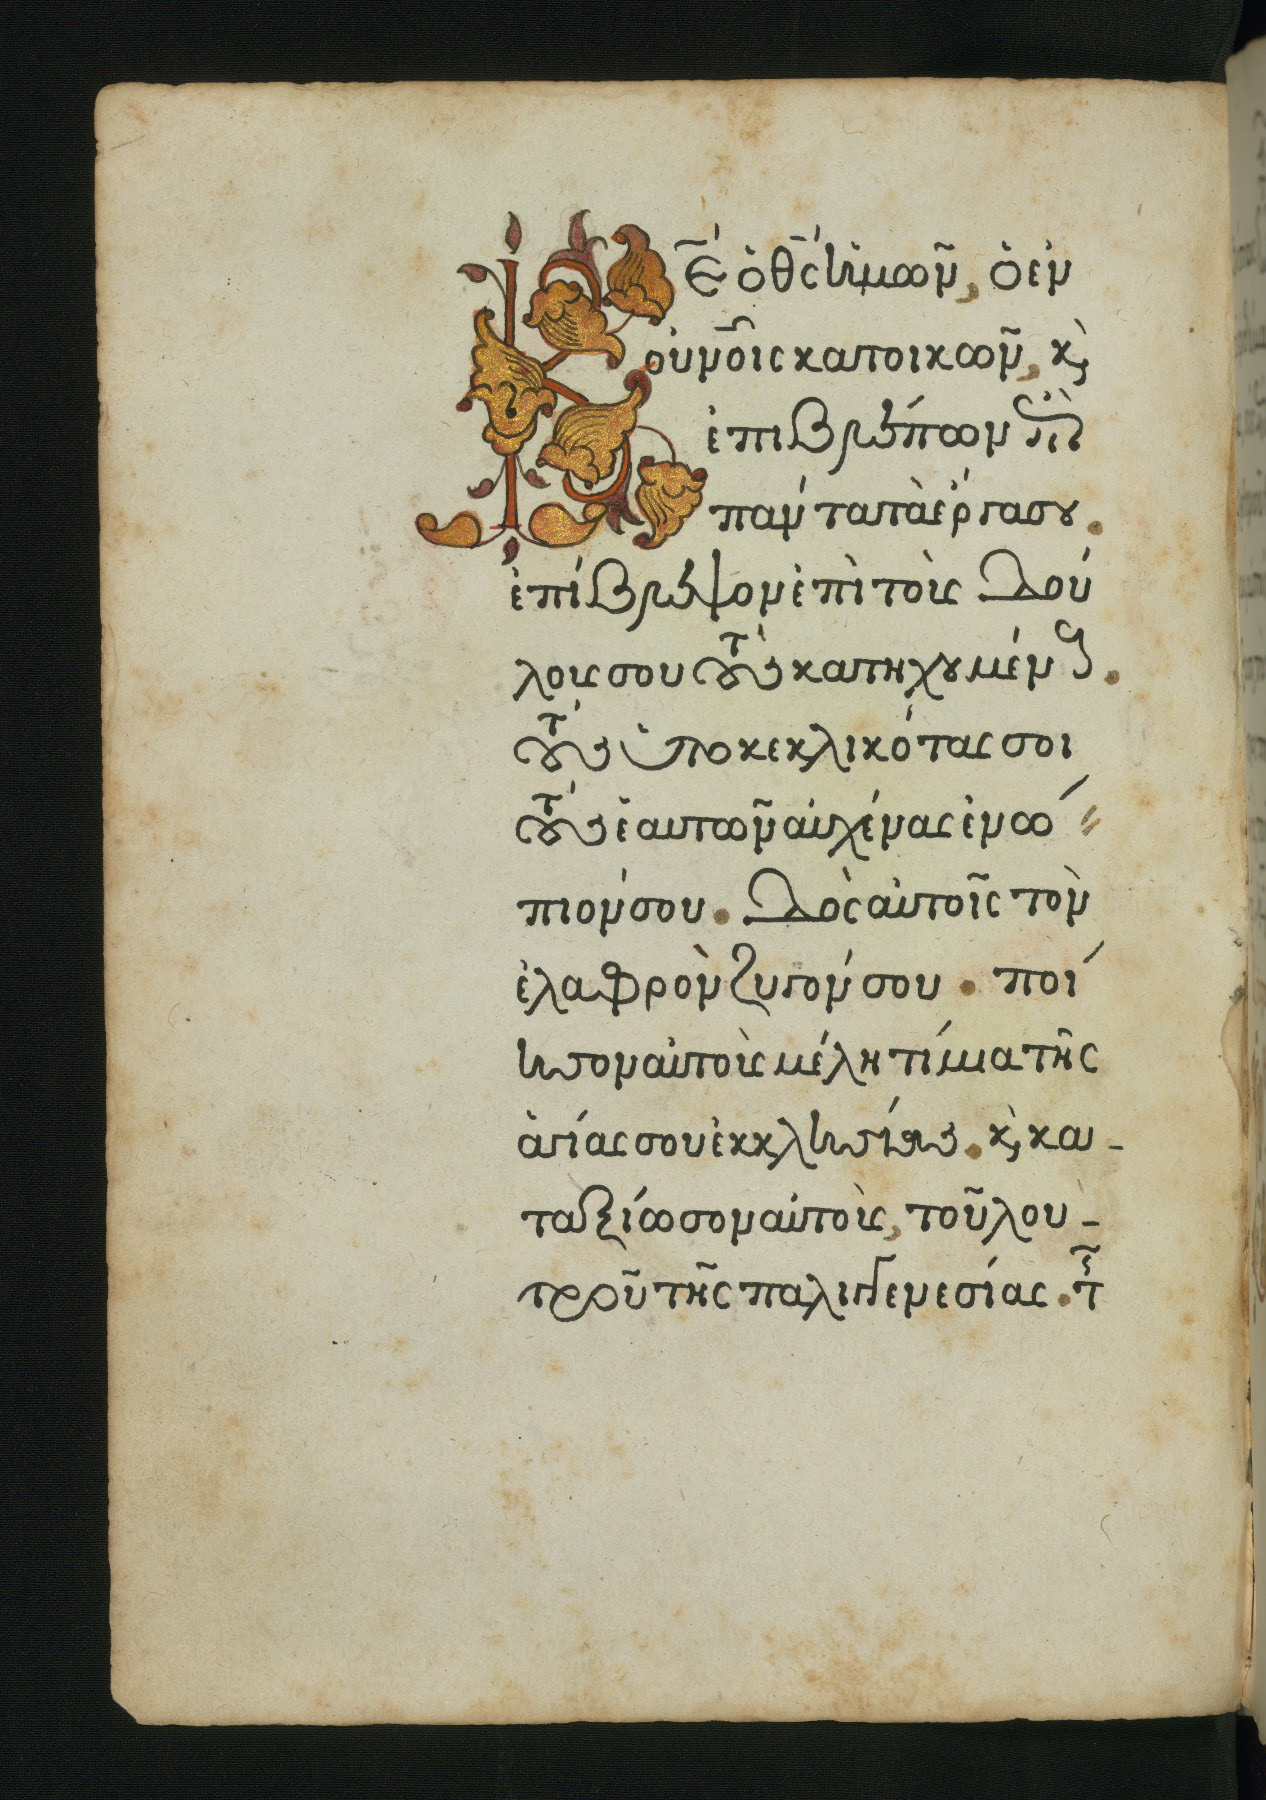 Κε ὁ θς ἡμῶν, ὁ ἐν
οὐνοῖς κατοικῶν, κ̀
ἐπιβλέπων ἐπὶ
πάντα τὰ ἔργα σου.
ἐπίβλεψον ἐπὶ τοὺς δού
λους σου τοὺς κατηχουμένους.
τοὺς ὑποκεκλικότας σοι
τοὺς ἑαυτῶν αὐχένας ἐνώ
πιόν σου. δὸς αὐτοῖς τὸν
ἐλαφρὸν ζυγόν σου. ποί
ησον αὐτοὺς μέλη τίμια τῆς
ἁγίας σου ἐκκλησίας. κ̀ κα-
ταξίωσον αὐτοὺς, τοῦ λου-
τροῦ τῆς παλιγγενεσίας. τῆς